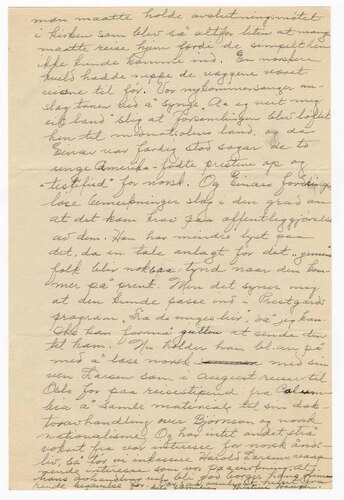 man maatte holde avslutningsmötet
i kirken som blev så altfor liten at mange
maatte reise hjem fordi de simpelthen
ikke kunde komme ind. En norskere
kveld hadde neppe de væggene været
vidne til för. Vor nykommersanger an-
slog tonen ved å synge "Aa eg veit meg
eit land" slig at forsamlingen blev löftet
hen til midnatsolens land, og da
Einar var færdig stod sogar de to
unge Amerika-fødte prestene op og
"testified" for norsk. Og Einars fordrings-
löse bemerkninger slog i den grad an
at det kom krav paa offentliggjörelse
av dem. Han har mindre lyst paa
det, da en tale anlagt for det
folk blir noksaa tynd naar den kom-
mer på prent. Men det synes mig
at den kunde passe ind i Prestgards
program "La de unge bli" så jeg kan-
ske kan formå gutten at sende den
til ham. Nu holder han bl. an. på
med å læse norsk med sin
ven Larsen som i august reiser til
Oslo for paa reisestipend fra Colum-
bia å samle materiale til sin dok-
toravhandling over Björnson og norsk
nationalisme. Og har intet andet slått
vokst fra vor interesse for norsk ånds-
liv, så tör vi inkassere Harold Larsens vaag-
nende interesse som vor
hans avhandling vil bli